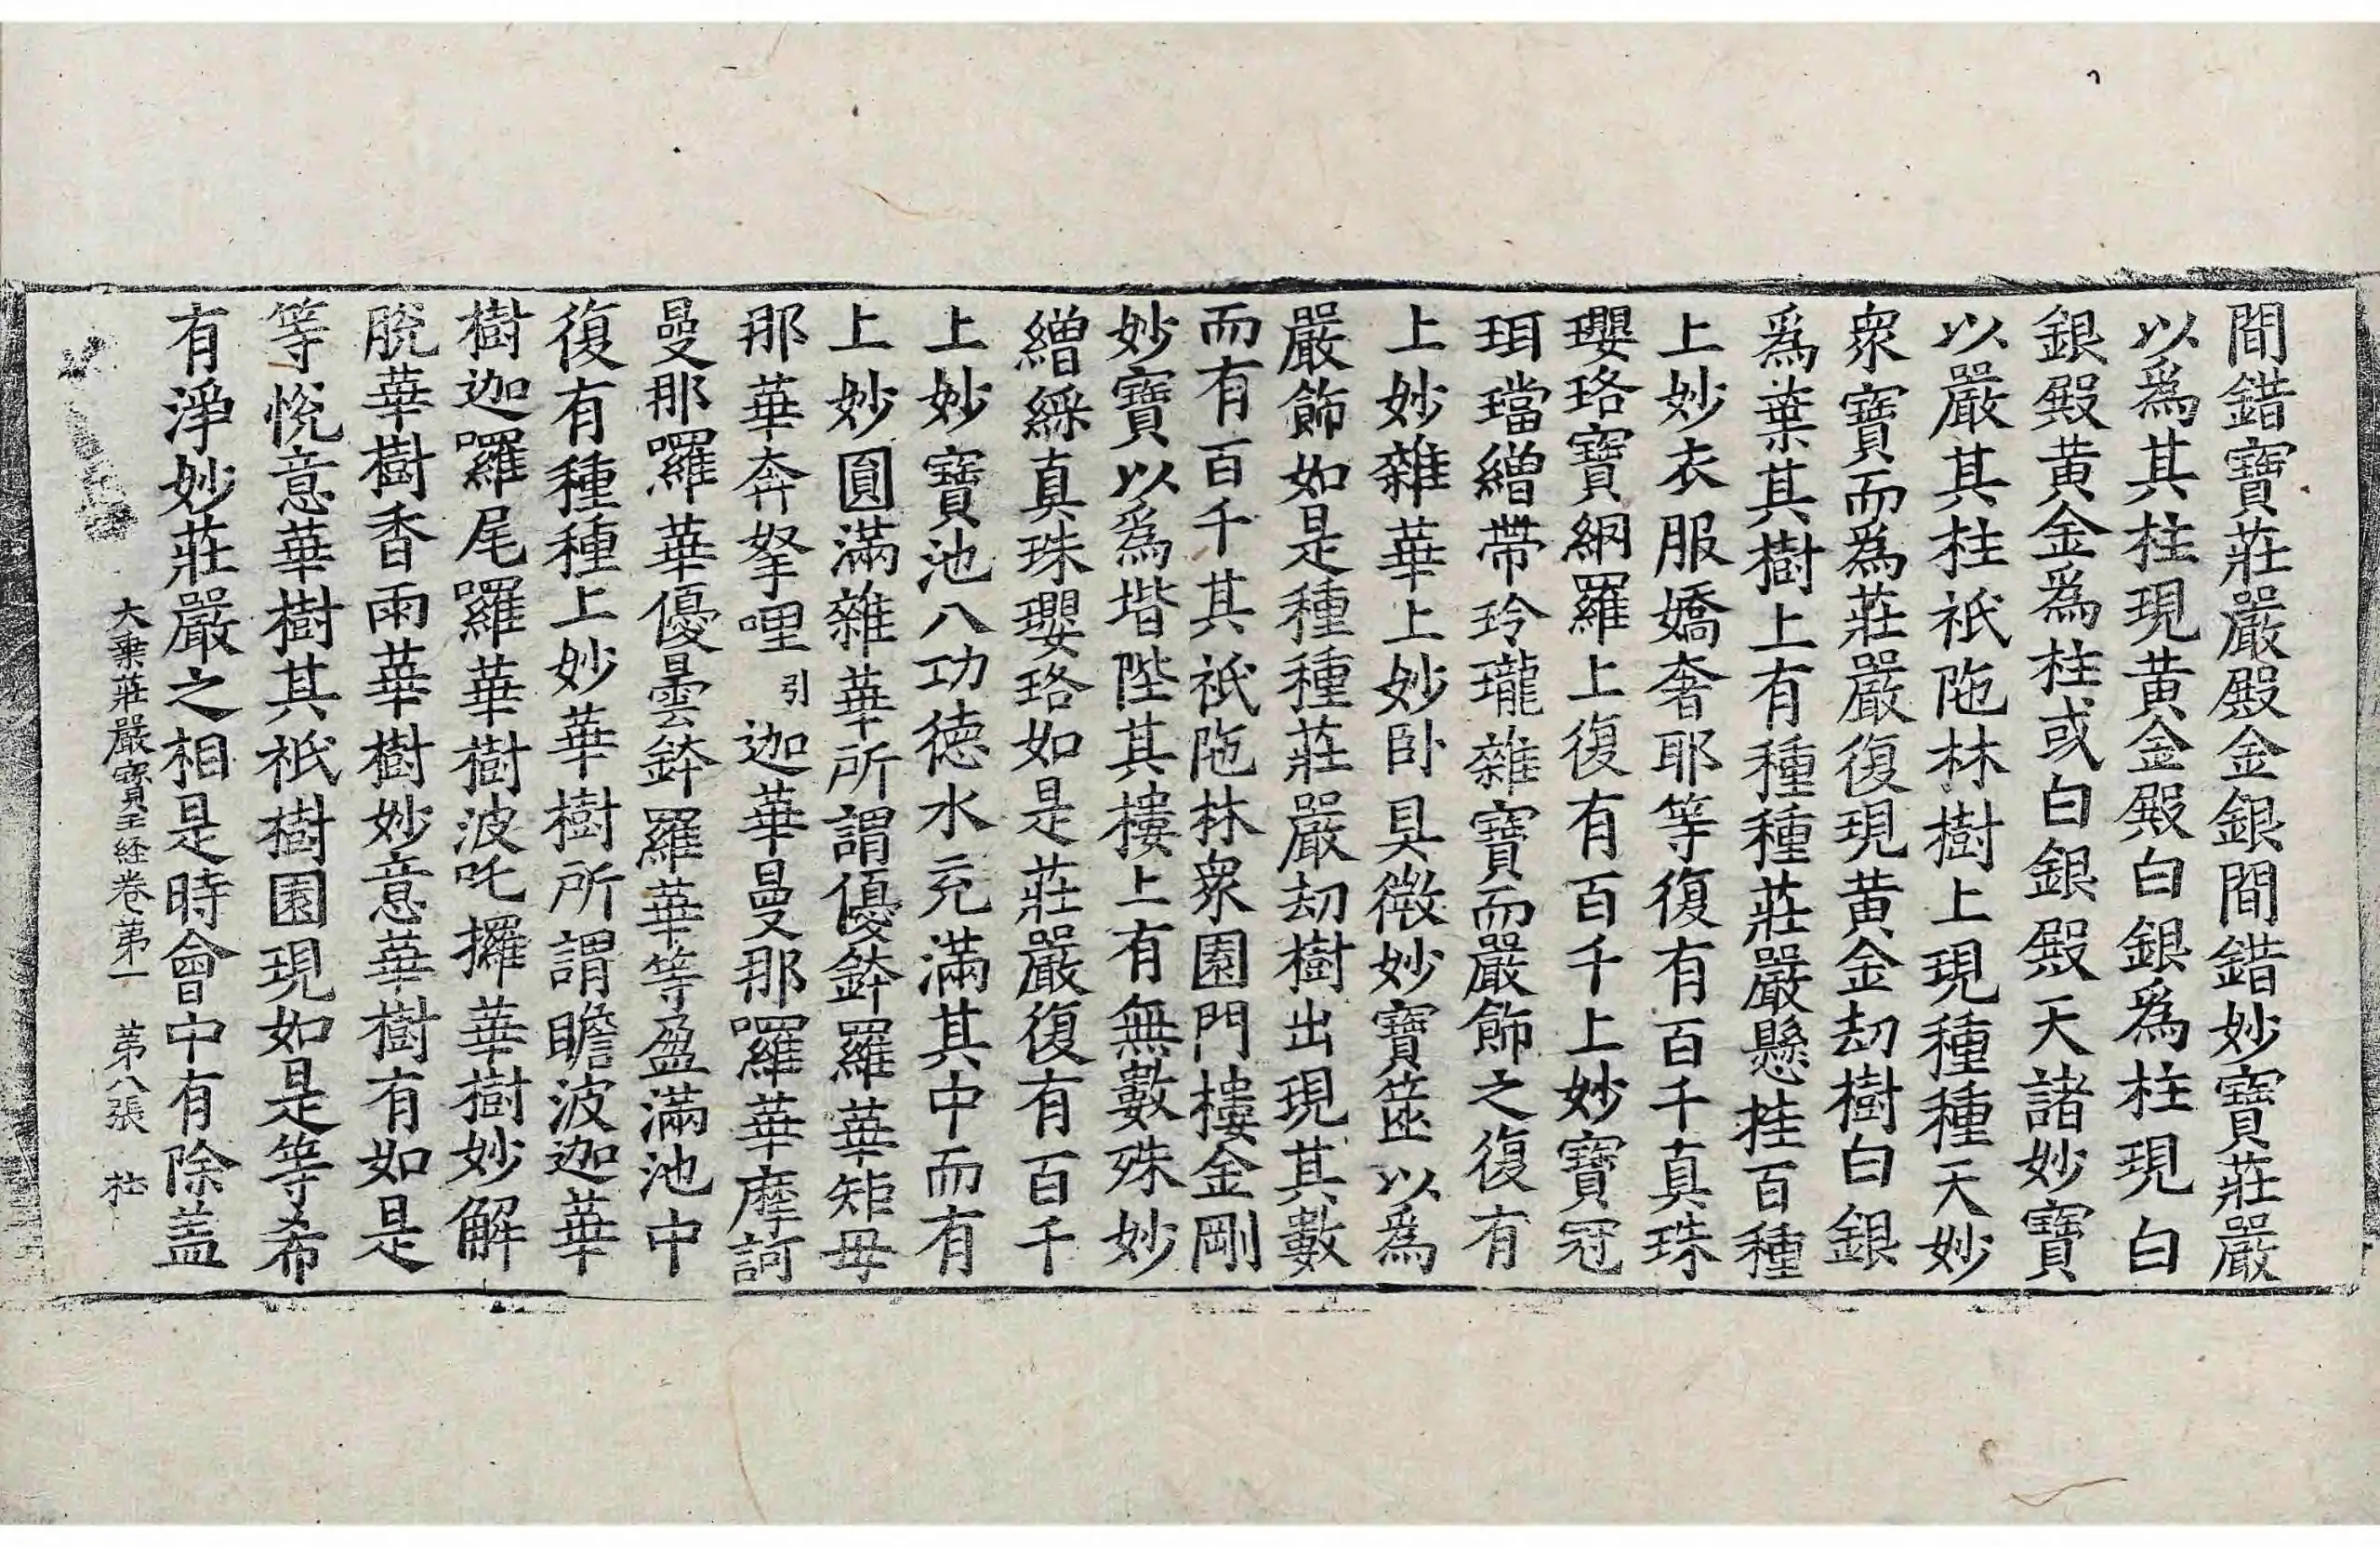 間錯寶莊嚴殿金銀間錯妙寶莊嚴
以爲其柱現黄金殿白銀爲柱現白
銀殿黄金爲柱或白銀殿天諸妙寶
以嚴其柱祇陁林樹上現種種天妙
衆寶而爲莊嚴復現黄金劫樹白銀
爲葉其樹上有種種莊嚴懸挂百種
上妙衣服嬌奢耶等復有百千真珠
瓔珞寶網羅上復有百千上妙寶冠
珥璫繒帶玲瓏雜寶而嚴飾之復有
上妙雜華上妙卧具微妙寶篋以爲
嚴飾如是種種莊嚴劫樹出現其數
而有百千其祇陁林衆園門樓金剛
妙寶以爲堦陛其樓上有無數殊妙
繒綵真珠瓔珞如是莊嚴復有百千
上妙寶池八功徳水充滿其中而有
上妙圓滿雜華所謂優鉢羅華矩母
那華奔拏哩引迦華曼那囉華摩訶
曼那囉華優曇鉢羅華等盈滿池中
復有種種上妙華樹所謂瞻波迦華
樹迦囉尾囉華樹波吒攞華樹妙解
脫華樹香雨華樹妙意華樹有如是
等悅意華樹其祇樹園現如是等希
有淨妙莊嚴之相是時會中有除盖
大乗莊嚴寳王経卷苐一 苐八張 杜